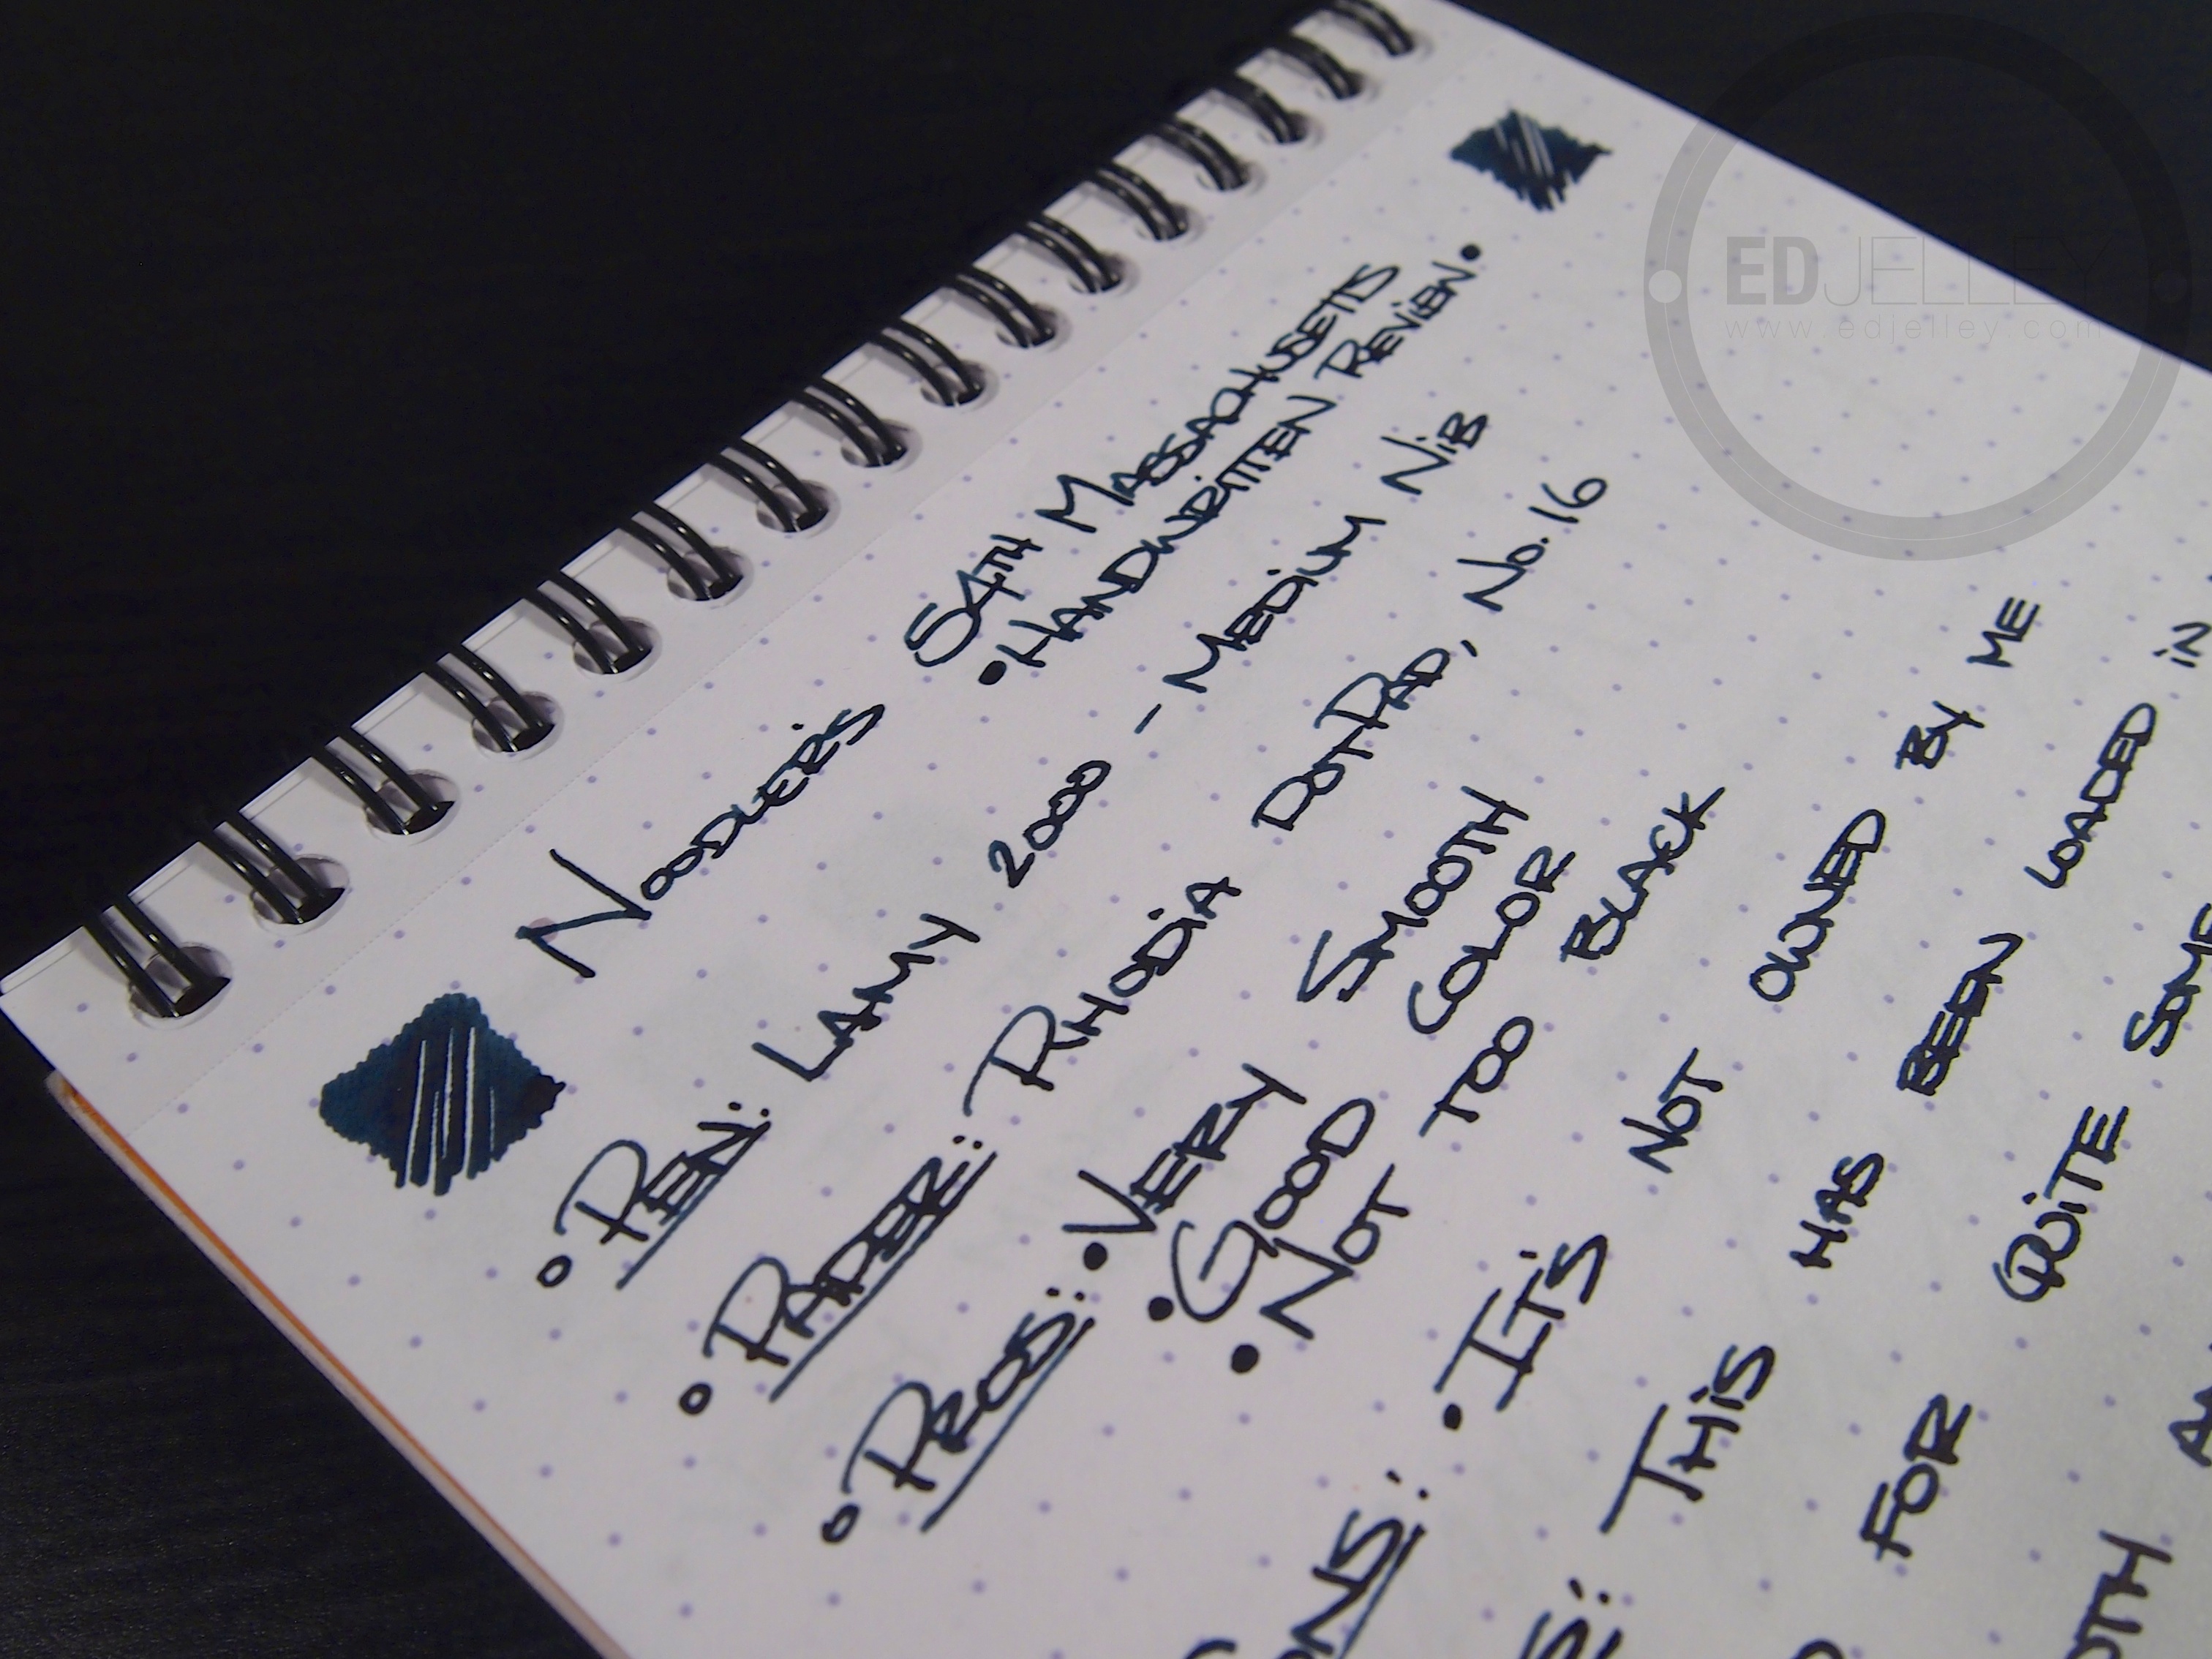 Noodler's 54th Massachusetts
• Handwritten Review •
Pen: Lamy 2000 - Medium Nib
Paper: Rhodia DotPad, No. 16
Pros: • Very Smooth
• Good Color
• Not Too Black
• It's Not Owned By Me
This Has Been Loaded in
For Quite Some
EDJELLEY
www.edjelley.com